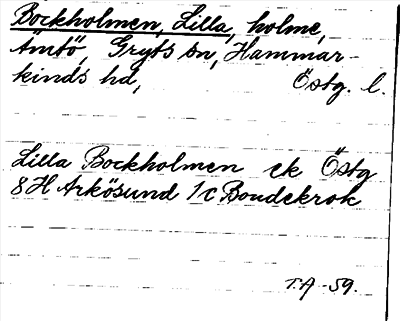 Bockholmen, Lilla, holme,
Ämtö, Gryts sn, Hammar-
kinds hd, Östg. l.
Lilla Bockholmen ek Östg
8H Arkösund 1c Bondekrok
T.A -59.